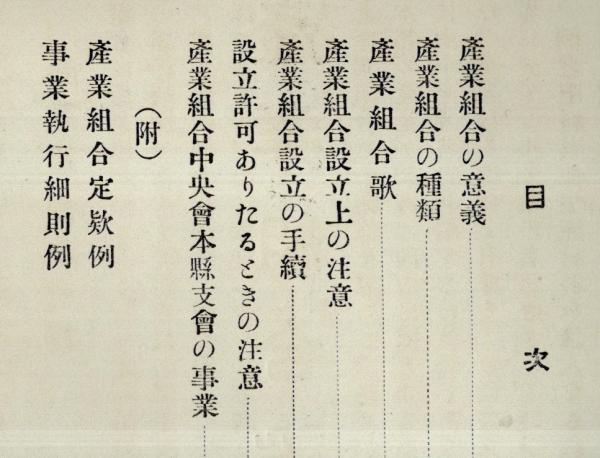 目次
産業組合の意義
産業組合の種類
産業組合歌
産業組合設立上の注意
産業組合設立の手續
設立許可ありたるときの注意
産業組合中央會本縣支會の事業
（附）
産業組合定欵例
事業執行細則例